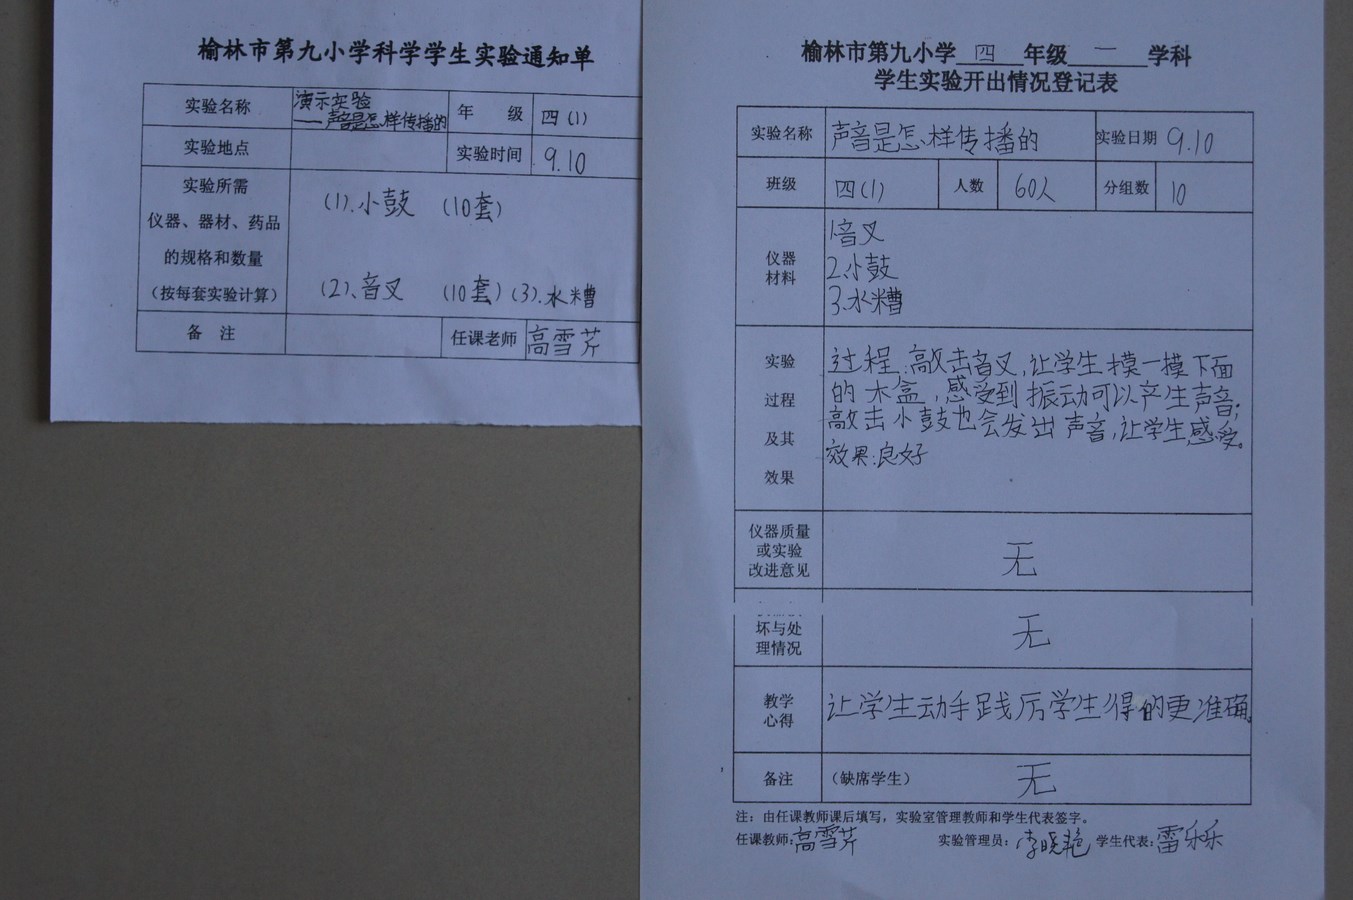 榆林市第九小学科学学生实验通知单
实验名称 演示实验
——声音是怎样传播的
年 级 四(1)
实验地点
实验时间 9.10
实验所需
仪器、器材、药品
的规格和数量
(按每套实验计算)
(1).小鼓 (10套)
(2)、音叉 (10套) (3).水糟
备 注
任课老师 高雪芹
榆林市第九小学 四 年级 一 学科
学生实验开出情况登记表
实验名称 声音是怎样传播的 实验日期 9.10
班级 四(1) 人数 60人 分组数 10
仪器
材料
1音叉
2.小鼓
3.水糟
实验
过程
及其
效果
过程:敲击音叉,让学生摸一摸下面
的木盒,感受到振动可以产生声音;
敲击小鼓也会发出声音,让学生感受。
效果:良好
仪器质量
或实验
改进意见
无
坏与处
理情况
无
教学
心得
让学生动手践厉学生得的更准确。
备注 (缺席学生) 无
注:由任课教师课后填写,实验室管理教师和学生代表签字。
任课教师:高雪芹 实验管理员:李晓艳 学生代表:雷乐乐